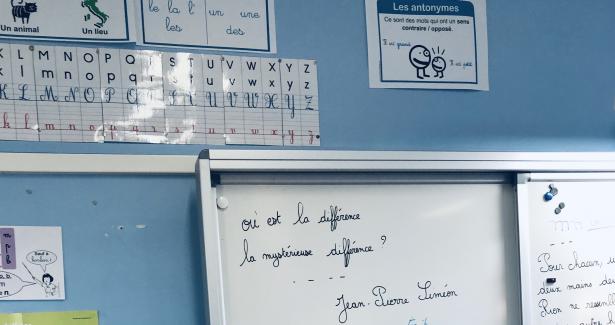 Un animal
Un lieu
le la l' un une
les des
Les antonymes
Ce sont des mots qui ont un sens
contraire / opposé.
K L M N O P Q R S T U V W X Y Z
k l m n o p q r s t u v w x y z
K L M N O P Q R S T U V W X Y Z
k l m n o p q r s t u v w x y z
où est la différence
la mystérieuse différence ?
Jean-Pierre Siméon
Pour chacun, u
deux mains deu
Rien ne ressembl